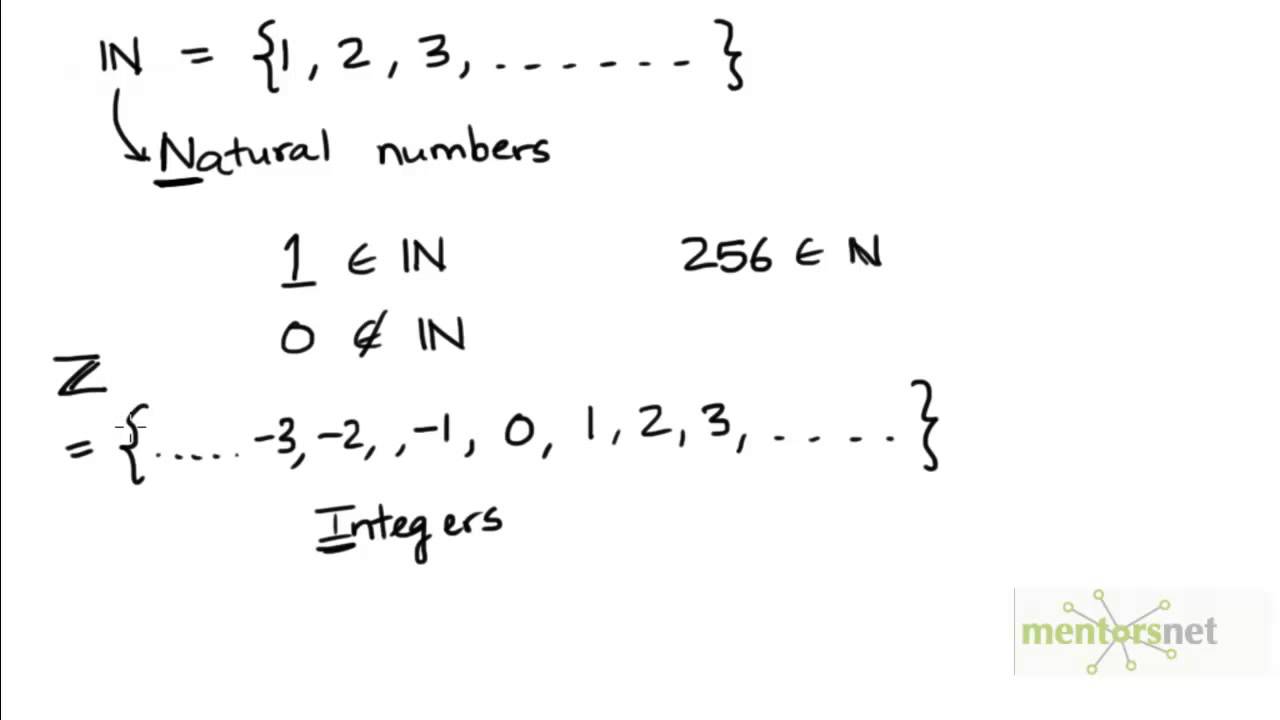 ℕ = {1, 2, 3, .......}
Natural numbers
1 ∈ ℕ 256 ∈ ℕ
0 ∉ ℕ
ℤ
= {..... -3, -2, , -1, 0, 1, 2, 3, ....}
Integers
mentorsnet